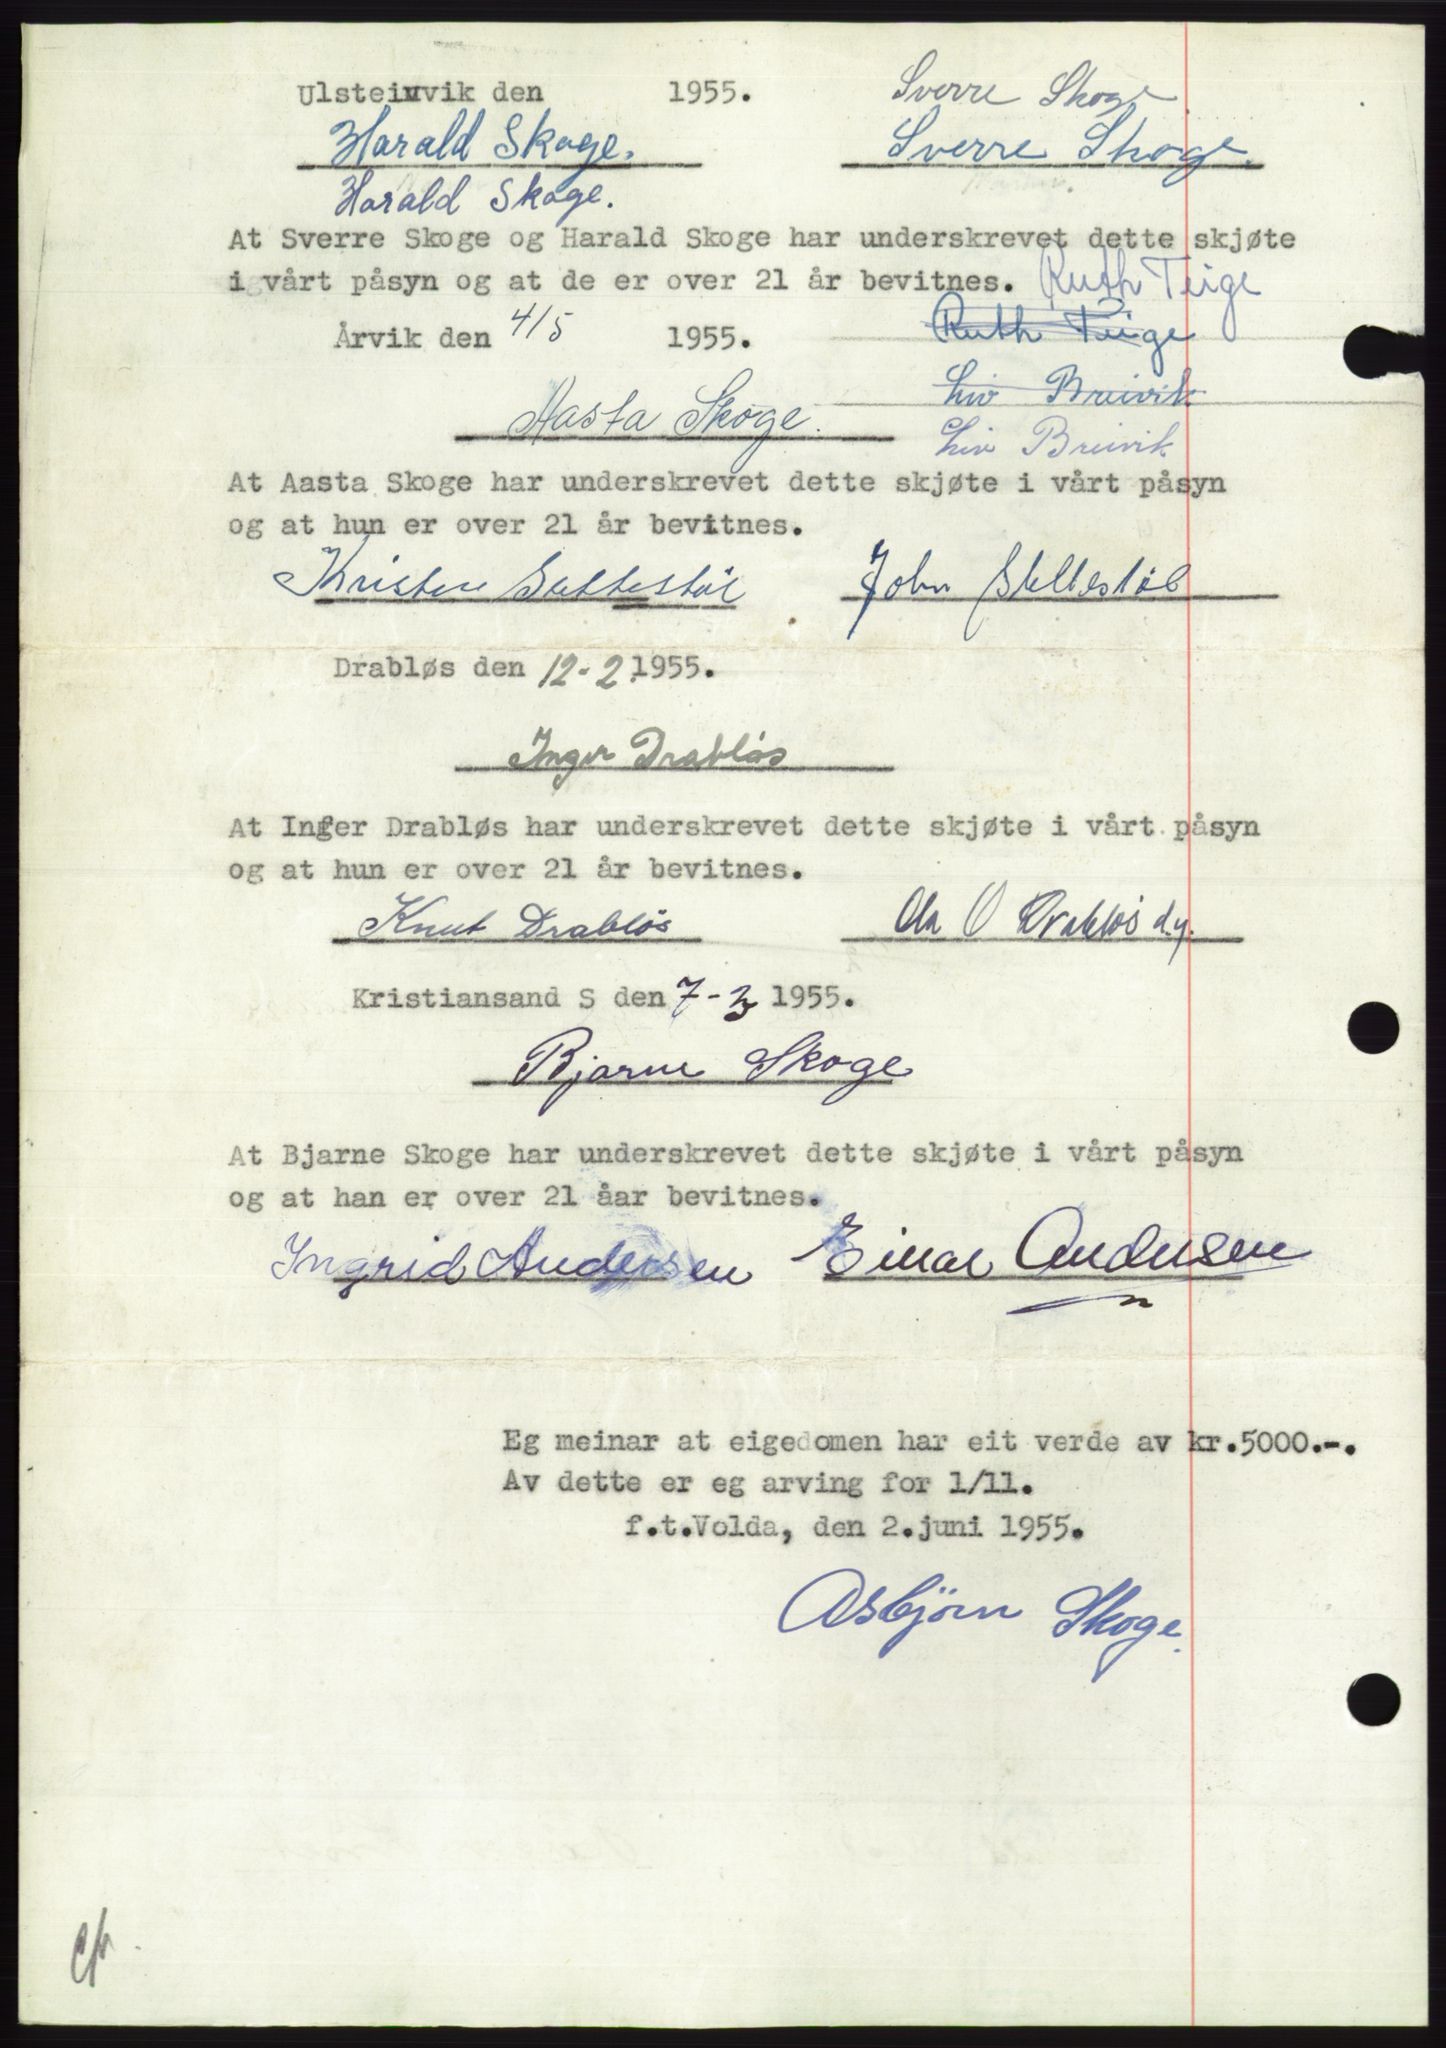 Ulsteinvik den 1955. Sverre Skoge
Harald Skoge. Sverre Skoge.
Harald Skoge.
At Sverre Skoge og Harald Skoge har underskrevet dette skjøte
i vårt påsyn og at de er over 21 år bevitnes. Ruth Teige
Årvik den 4/5 1955. Ruth Teige
Liv Breivik
Aasta Skoge.
Liv Breivik
At Aasta Skoge har underskrevet dette skjøte i vårt påsyn
og at hun er over 21 år bevitnes.
Kristen John
Drabløs den 12-2 1955.
Inger Drabløs
At Inger Drabløs har underskrevet dette skjøte i vårt påsyn
og at hun er over 21 år bevitnes.
Knut Drabløs Ola O Drabløs d.y.
Kristiansand S den 7-3 1955.
Bjarne Skoge
At Bjarne Skoge har underskrevet dette skjøte i vårt påsyn
og at han er over 21 åar bevitnes.
Ingrid Andersen Einar Andersen
Eg meinar at eigedomen har eit verde av kr.5000.-.
Av dette er eg arving for 1/11.
f.t.Volda, den 2.juni 1955.
Asbjörn Skoge.